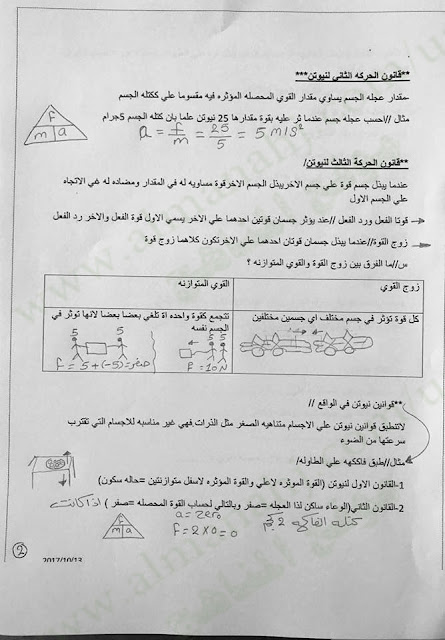 **قانون الحركه الثاني لنيوتن***
-مقدار عجله الجسم يساوي مقدار القوي المحصله المؤثره فيه مقسوما علي ككتله الجسم
مثال //احسب عجله جسم عندما ثر عليه بقوة مقدارها 25 نيوتن علما بان كتله الجسم 5جرام
f
m a
a = f/m = 25/5 = 5 m/s²
**قانون الحركة الثالث لنيوتن/
عندما يبذل جسم قوة علي جسم الاخريبذل الجسم الاخرقوة مساويه له في المقدار ومضاده له غي الاتجاه
علي الجسم الاول
قوتا الفعل ورد الفعل //عند يؤثر جسمان قوتين احدهما علي الاخر يسمي الاول قوة الفعل والاخر رد الفعل
زوج القوة//عندما يبذل جسمان قوتان احدهما علي الاخرتكون كلاهما زوج قوة
س//ما الفرق بين زوج القوة والقوي المتوازنه ؟
زوج القوي
القوي المتوازنه
كل قوة تؤثر في جسم مختلف اي جسمين مختلفين
تتجمع كقوة واحده اة تلغي بعضا بعضا لانها تؤثر في
الجسم نفسه
5 5
5 5
f = 5 + (-5) = صفر
f = 10 N
**قوانين نيوتن في الواقع //
لاتنطبق قوانين نيوتن علي الاجسام متناهيه الصغر مثل الذرات.فهي غير مناسبه للاجسام التي تقترب
سرعتها من الضوء
مثال//طبق فاككهه علي الطاوله/
1-القانون الاول لنيوتن (القوه الموثره لاعلي والقوة الموثره لاسفل متوازنتين =حاله سكون)
2-القانون الثاني(الوعاء ساكن لذا العجله =صفر وبالتالي لحساب القوة المحصله =صفر ) اذا كانت
كتلة الفاكهه 2 كجم
a = zero
f = 2 x 0 = 0
f
m a
2
2017/10/13
www.almanahj